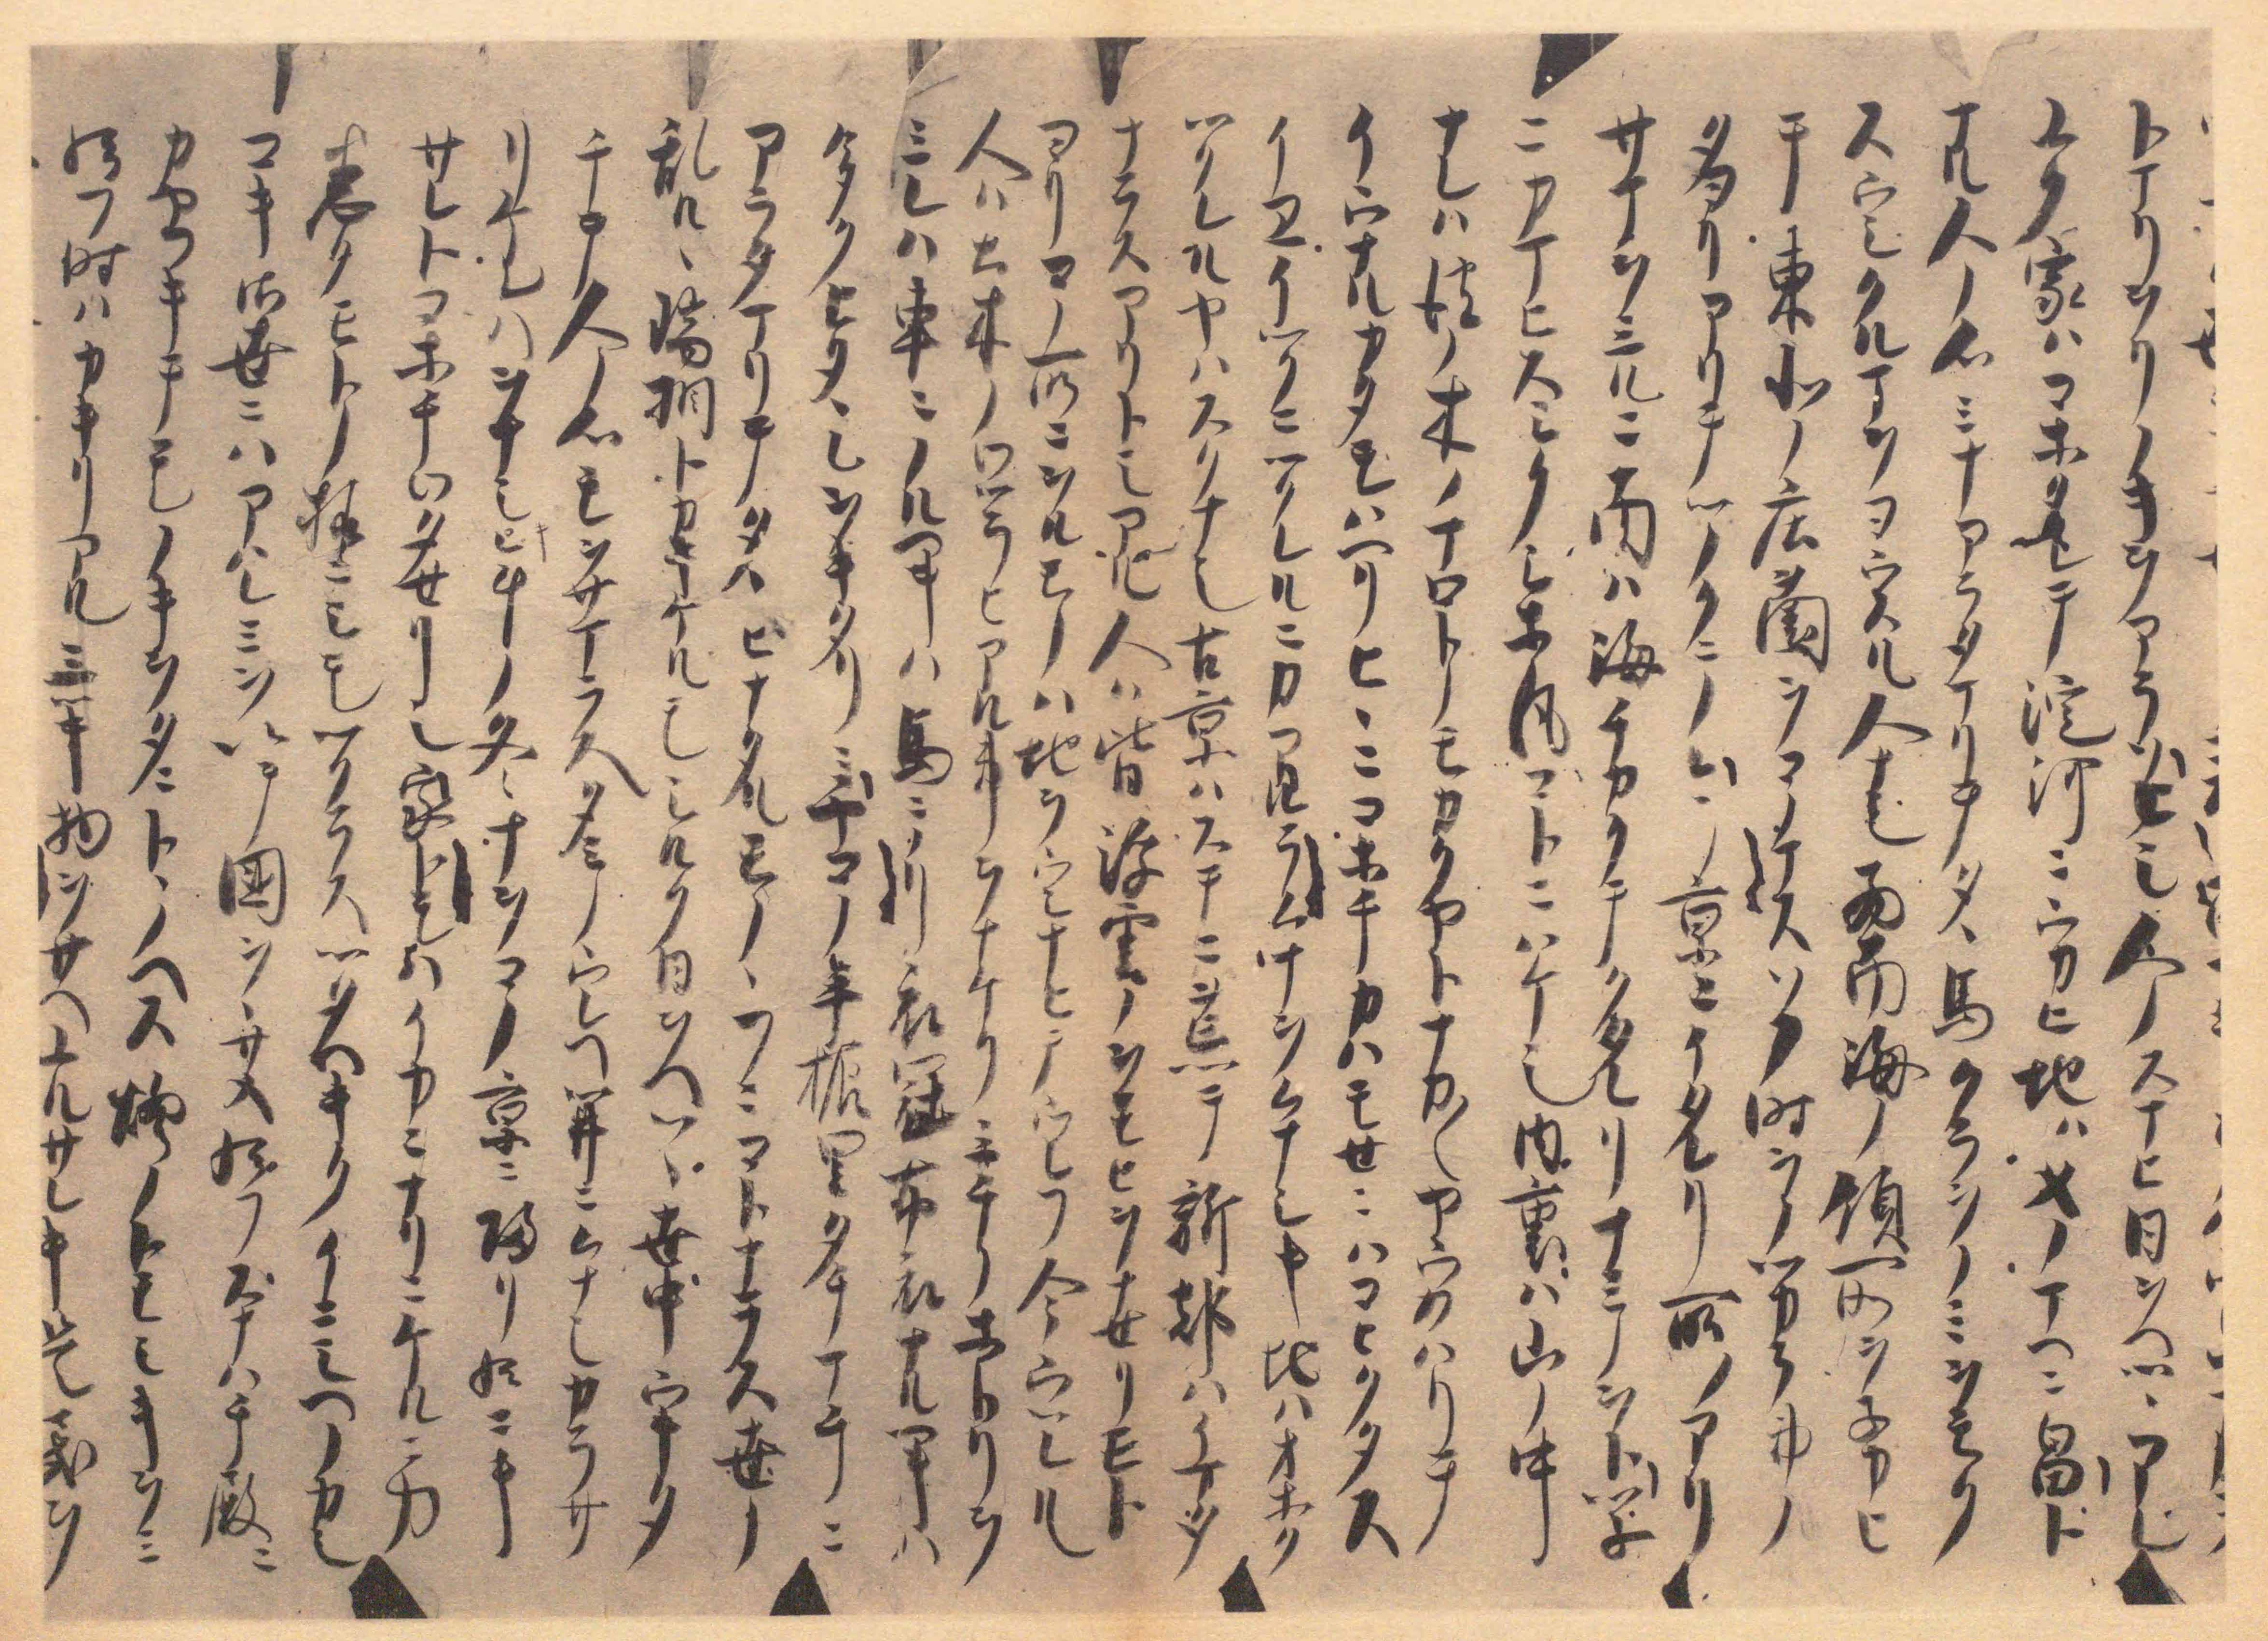 トナリツヽノキヲアラソヒシ人ノスマヒ日ヲヘツヽアレ
ユク家ハコホタレテ淀河ニウカヒ地ハメノマヘニ畠ト
ナル人ノ心ミナアラタマリテタヽ馬クラヲノミヲモク
スウシクルマヲヨウスル人ナシ西南海ノ領所ヲネカヒ
テ東北ノ庄薗ヲコノマスソノ時ヲノツカラ事ノ
タヨリアリテツノクニノ今ノ京ニイタレリ所ノアリ
サマヲミルニ南ハ海チカクテクタレリナミノヲトツネ
ニカマヒスシクシホ風コトニハケシ内裏ハ山ノ中
ナレハ彼ノ木ノマロトノモカクヤトナカ〱ヤウカハリテ
イウナルカタモハヘリヒヽニコホチカハモセニハコヒクタス
イヱイツクニツクレルニカアルラムナヲムナシキ地ハオホク
ツクレルヤハスクナシ古京ハステニ荒テ新都ハイマタ
ナラスアリトシアル人ハ皆浮雲ノヲモヒヲナセリモト
ヨリコノ所ニヲルモノハ地ヲウシナヒテウレフ今ウツレル
人ハ土木ノワツラヒアル事ヲナケクミチノホトリヲ
ミレハ車ニノルヘキハ馬ニノリ衣冠布衣ナルヘキハ
多クヒタヽレヲキタリミヤコノ手振里タチマチニ
アラタマリテタヽヒナタルモノヽフニコトナラス世ノ
乱ルヽ瑞相トカキケルモシルク日ヲヘツヽ世中ウキタ
チテ人ノ心モヲサマラスタミノウレヘツヰニムナシカラサ
リケレハヲナシキ年ノ冬ナヲコノ京ニ帰リ給ニキ
サレトコホチワタセリシ家トモハイカニナリニケルニカ
悉クモトノ様ニシモツクラスツタヘキクイニシヘノカシ
コキ御世ニハアハレミヲ以テ國ヲヽサメ給フスナハチ殿ニ
カヤフキテモノキヲタニトヽノヘス煙ノトモシキヲミ
給フ時ハカキリアルミツキ物ヲサヘユルサレキ是民ヲ